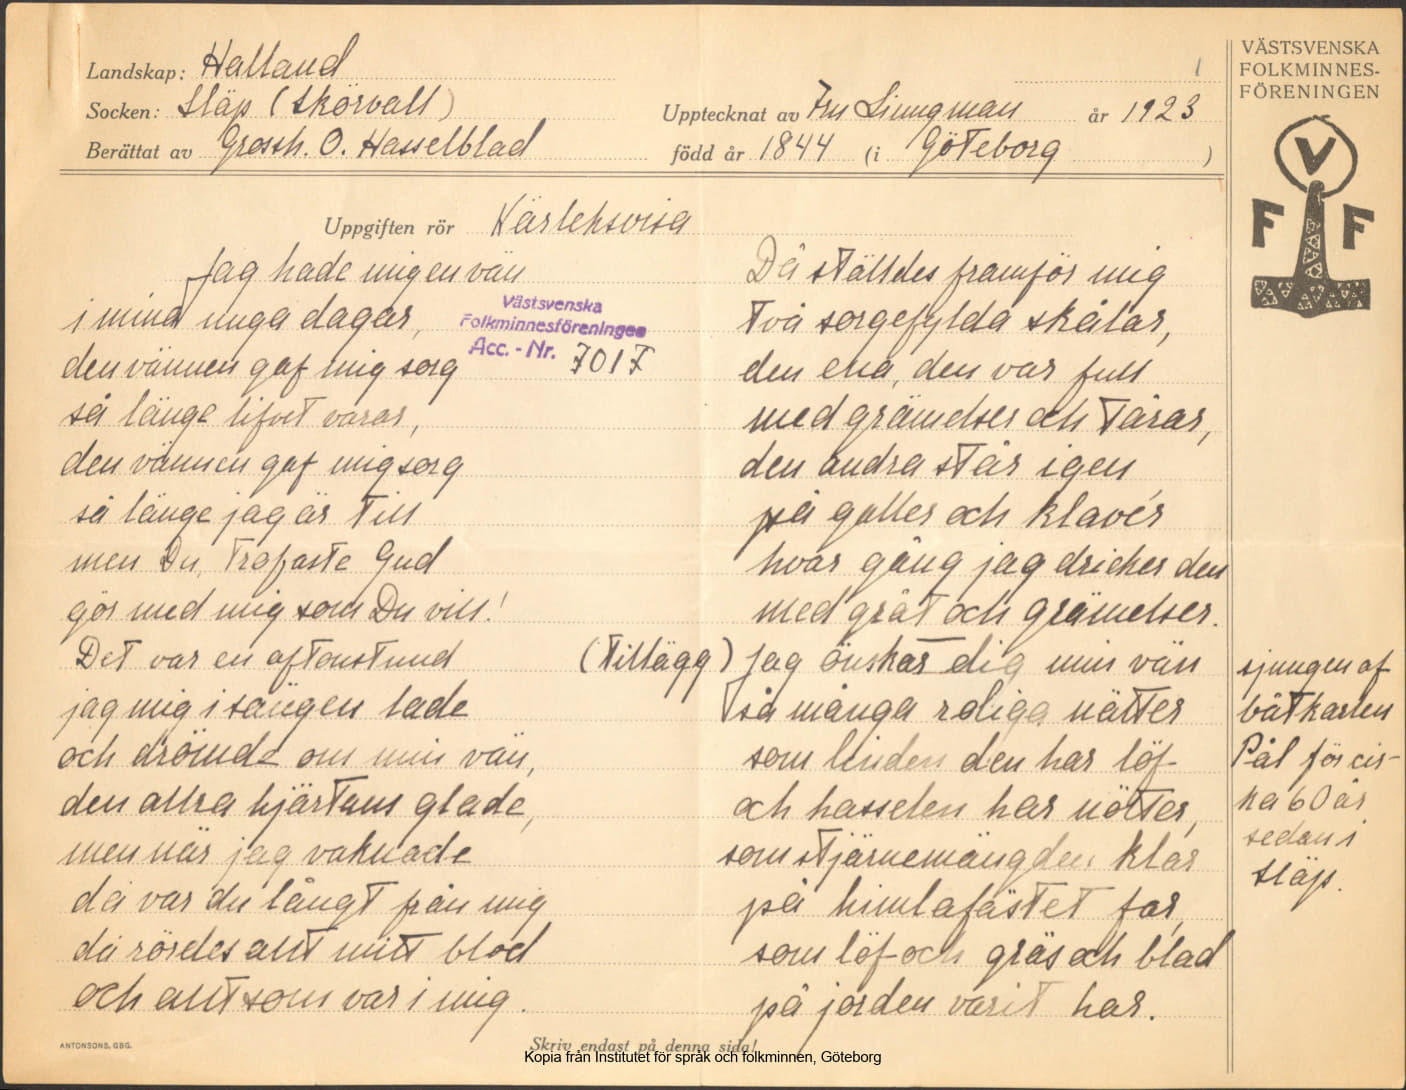 Landskap: Halland
Socken: Släp (Skörvall)
Berättat av Grossh. O. Hasselblad
1
Upptecknat av Fru Ljungman år 1923
född år 1844 (i Göteborg )
VÄSTSVENSKA
FOLKMINNES-
FÖRENINGEN
V
F F
Uppgiften rör Kärleksvisa
Västsvenska
Folkminnesföreningen
Acc. - Nr. 7017
Jag hade mig en vän
i mina unga dagar,
den vännen gaf mig sorg
så länge lifvet varar,
den vännen gaf mig sorg
så länge jag är till
men Du, trofaste Gud
gör med mig som Du vill!
Det var en aftonstund
jag mig i sängen lade
och drömde om min vän,
den allra hjärtans glade,
men när jag vaknade
då var du långt från mig
då rördes allt mitt blod
och allt som var i mig.
Då ställdes framför mig
två sorgefylda skålar,
den ena, den var full
med grämelser och tårar,
den andra står igen
på galler och klavér
hvar gång jag dricker den
med gråt och grämelser.
(tillägg) Jag önskar dig min vän
så många roliga nätter
som linden den har löf
och hasselen har nötter,
som stjärnemängden klar
på himlafästet far,
som löf och gräs och blad
på jorden varit har.
sjungen af
båtkarlen
Pål för cir-
ka 60 år
sedan i
Släp.
ANTONSONS, GBG.
Skriv endast på denna sida!
Kopia från Institutet för språk och folkminnen, Göteborg